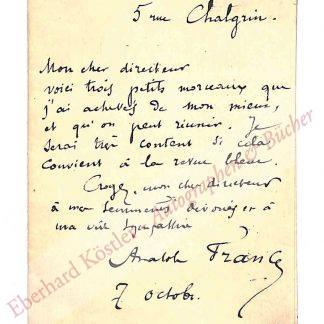 5 rue Chalgrin.
Mon cher directeur
voici trois petits morceaux que
j'ai achevés de mon mieux,
et qu'on peut réunir. Je
serai très content si cela
convient à la revue bleue.
Croyez, mon cher directeur
à mes sentiments dévoués et à
ma vive sympathie
Anatole France
7 octobr.
Eberhard Köstler Autographen & Bücher